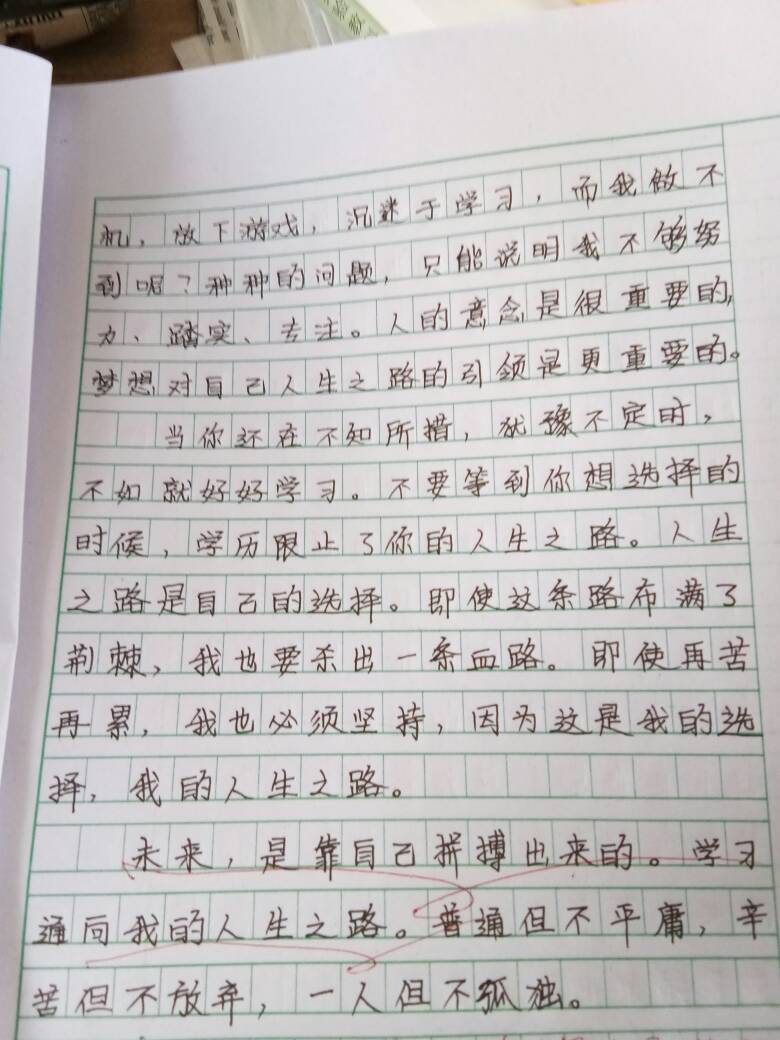 机，放下游戏，沉迷于学习，而我做不
到呢？种种的问题，只能说明我不够努
力、踏实、专注。人的意念是很重要的，
梦想对自己人生之路的引领是更重要的。
当你还在不知所措，犹豫不定时，
不如就好好学习。不要等到你想选择的
时候，学历限止了你的人生之路。人生
之路是自己的选择。即使这条路布满了
荆棘，我也要杀出一条血路。即使再苦
再累，我也必须坚持，因为这是我的选
择，我的人生之路。
未来，是靠自己拼搏出来的。学习
通向我的人生之路。普通但不平庸，辛
苦但不放弃，一人但不孤独。